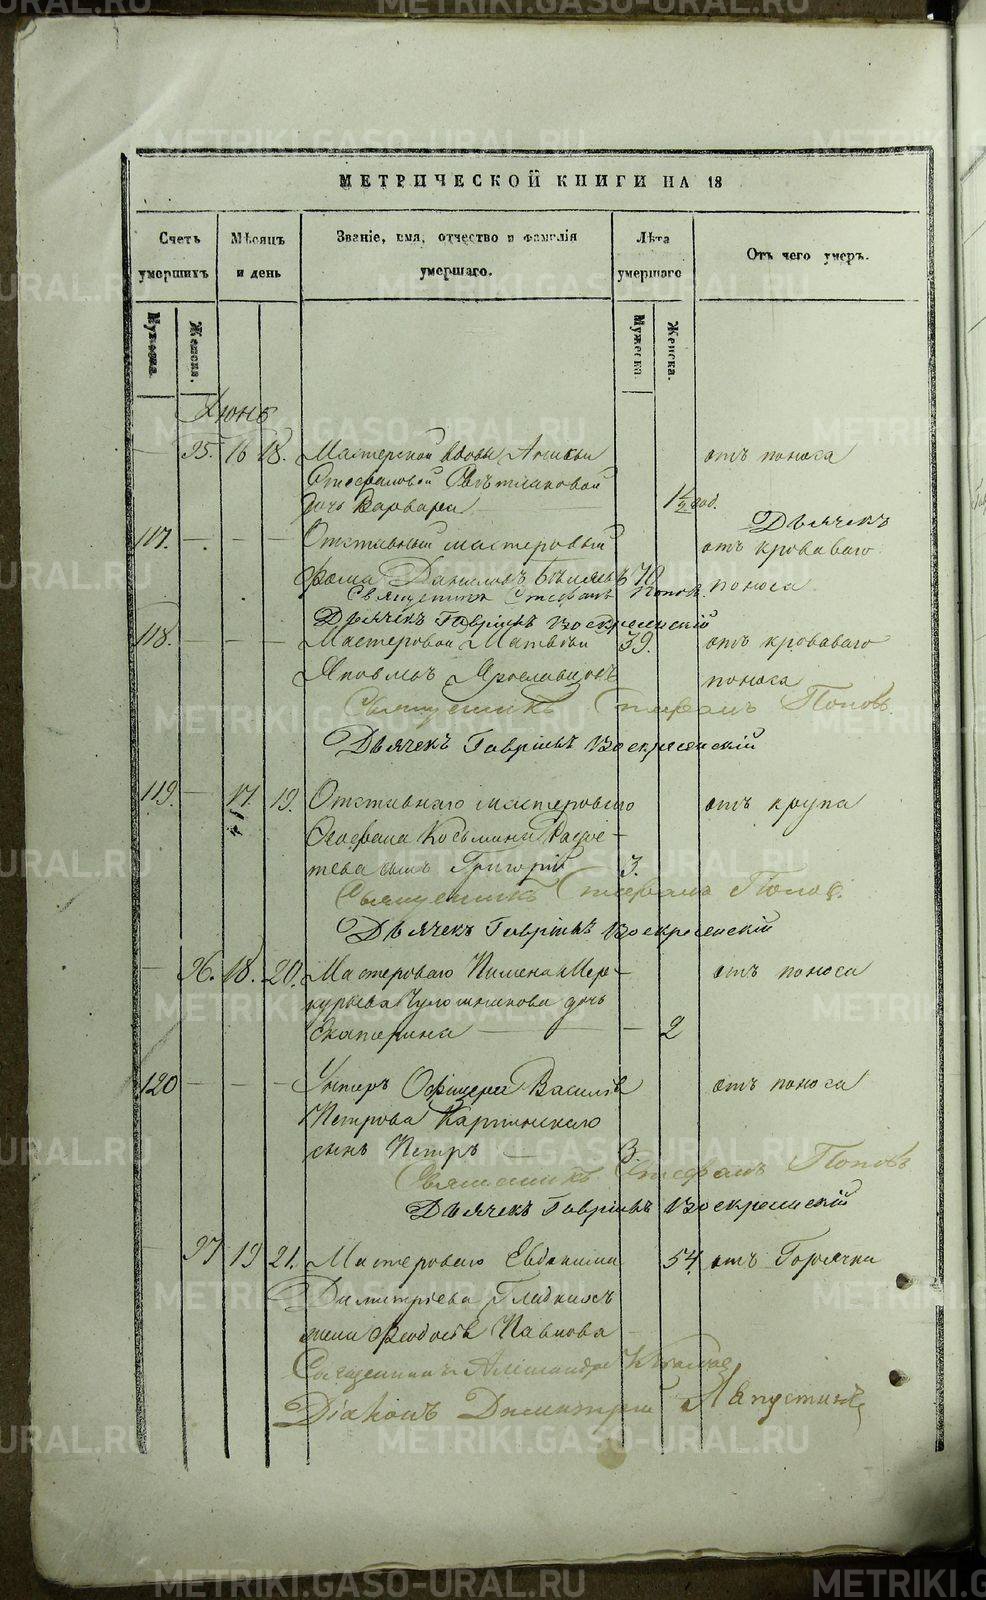 МЕТРИЧЕСКОЙ КНИГИ НА 18
Счетъ умершихъ
Мѣсяцъ и день
Званіе, имя, отчество и фамилія умершаго.
Лѣта умершаго
Отъ чего умеръ.
Мужеска.
Женска.
Мужеска.
Женска.
Іюнь
— 95. 16 18. Мастерской вдовы отъ поноса
дочь Варвара 1 1/2 год.
Дьячекъ
117. — — — Отставный мастеровый отъ кроваваго
Фома Даниловъ Бѣляевъ 70 поноса
Священникъ Стефанъ Поповъ.
Дьячекъ Гавріилъ Воскресенскій
118. — — — Мастеровой Матвѣй 39. отъ кроваваго
Яковлевъ Ярославцовъ поноса
Священникъ Стефанъ Поповъ.
Дьячекъ Гавріилъ Воскресенскій
119. — 17. 19. Отставнаго мастероваго отъ крупа
Козьмина
сынъ Григорій 3.
Священникъ Стефанъ Поповъ.
Дьячекъ Гавріилъ Воскресенскій
— 96. 18. 20. Мастероваго Пимена Мер- отъ поноса
курьева дочь
Екатерина — 2
120 — — — Унтеръ Офицера Василья отъ поноса
Петрова Карпинскаго
сынъ Петръ 3.
Священникъ Стефанъ Поповъ
Дьячекъ Гавріилъ Воскресенскій
— 97 19 21. Мастероваго Евдокима 54. отъ Горячки
Димитріева Гладкихъ
жена Павлова
Священникъ Александръ
Діаконъ Димитрій Лапустинъ
METRIKI.GASO-URAL.RU